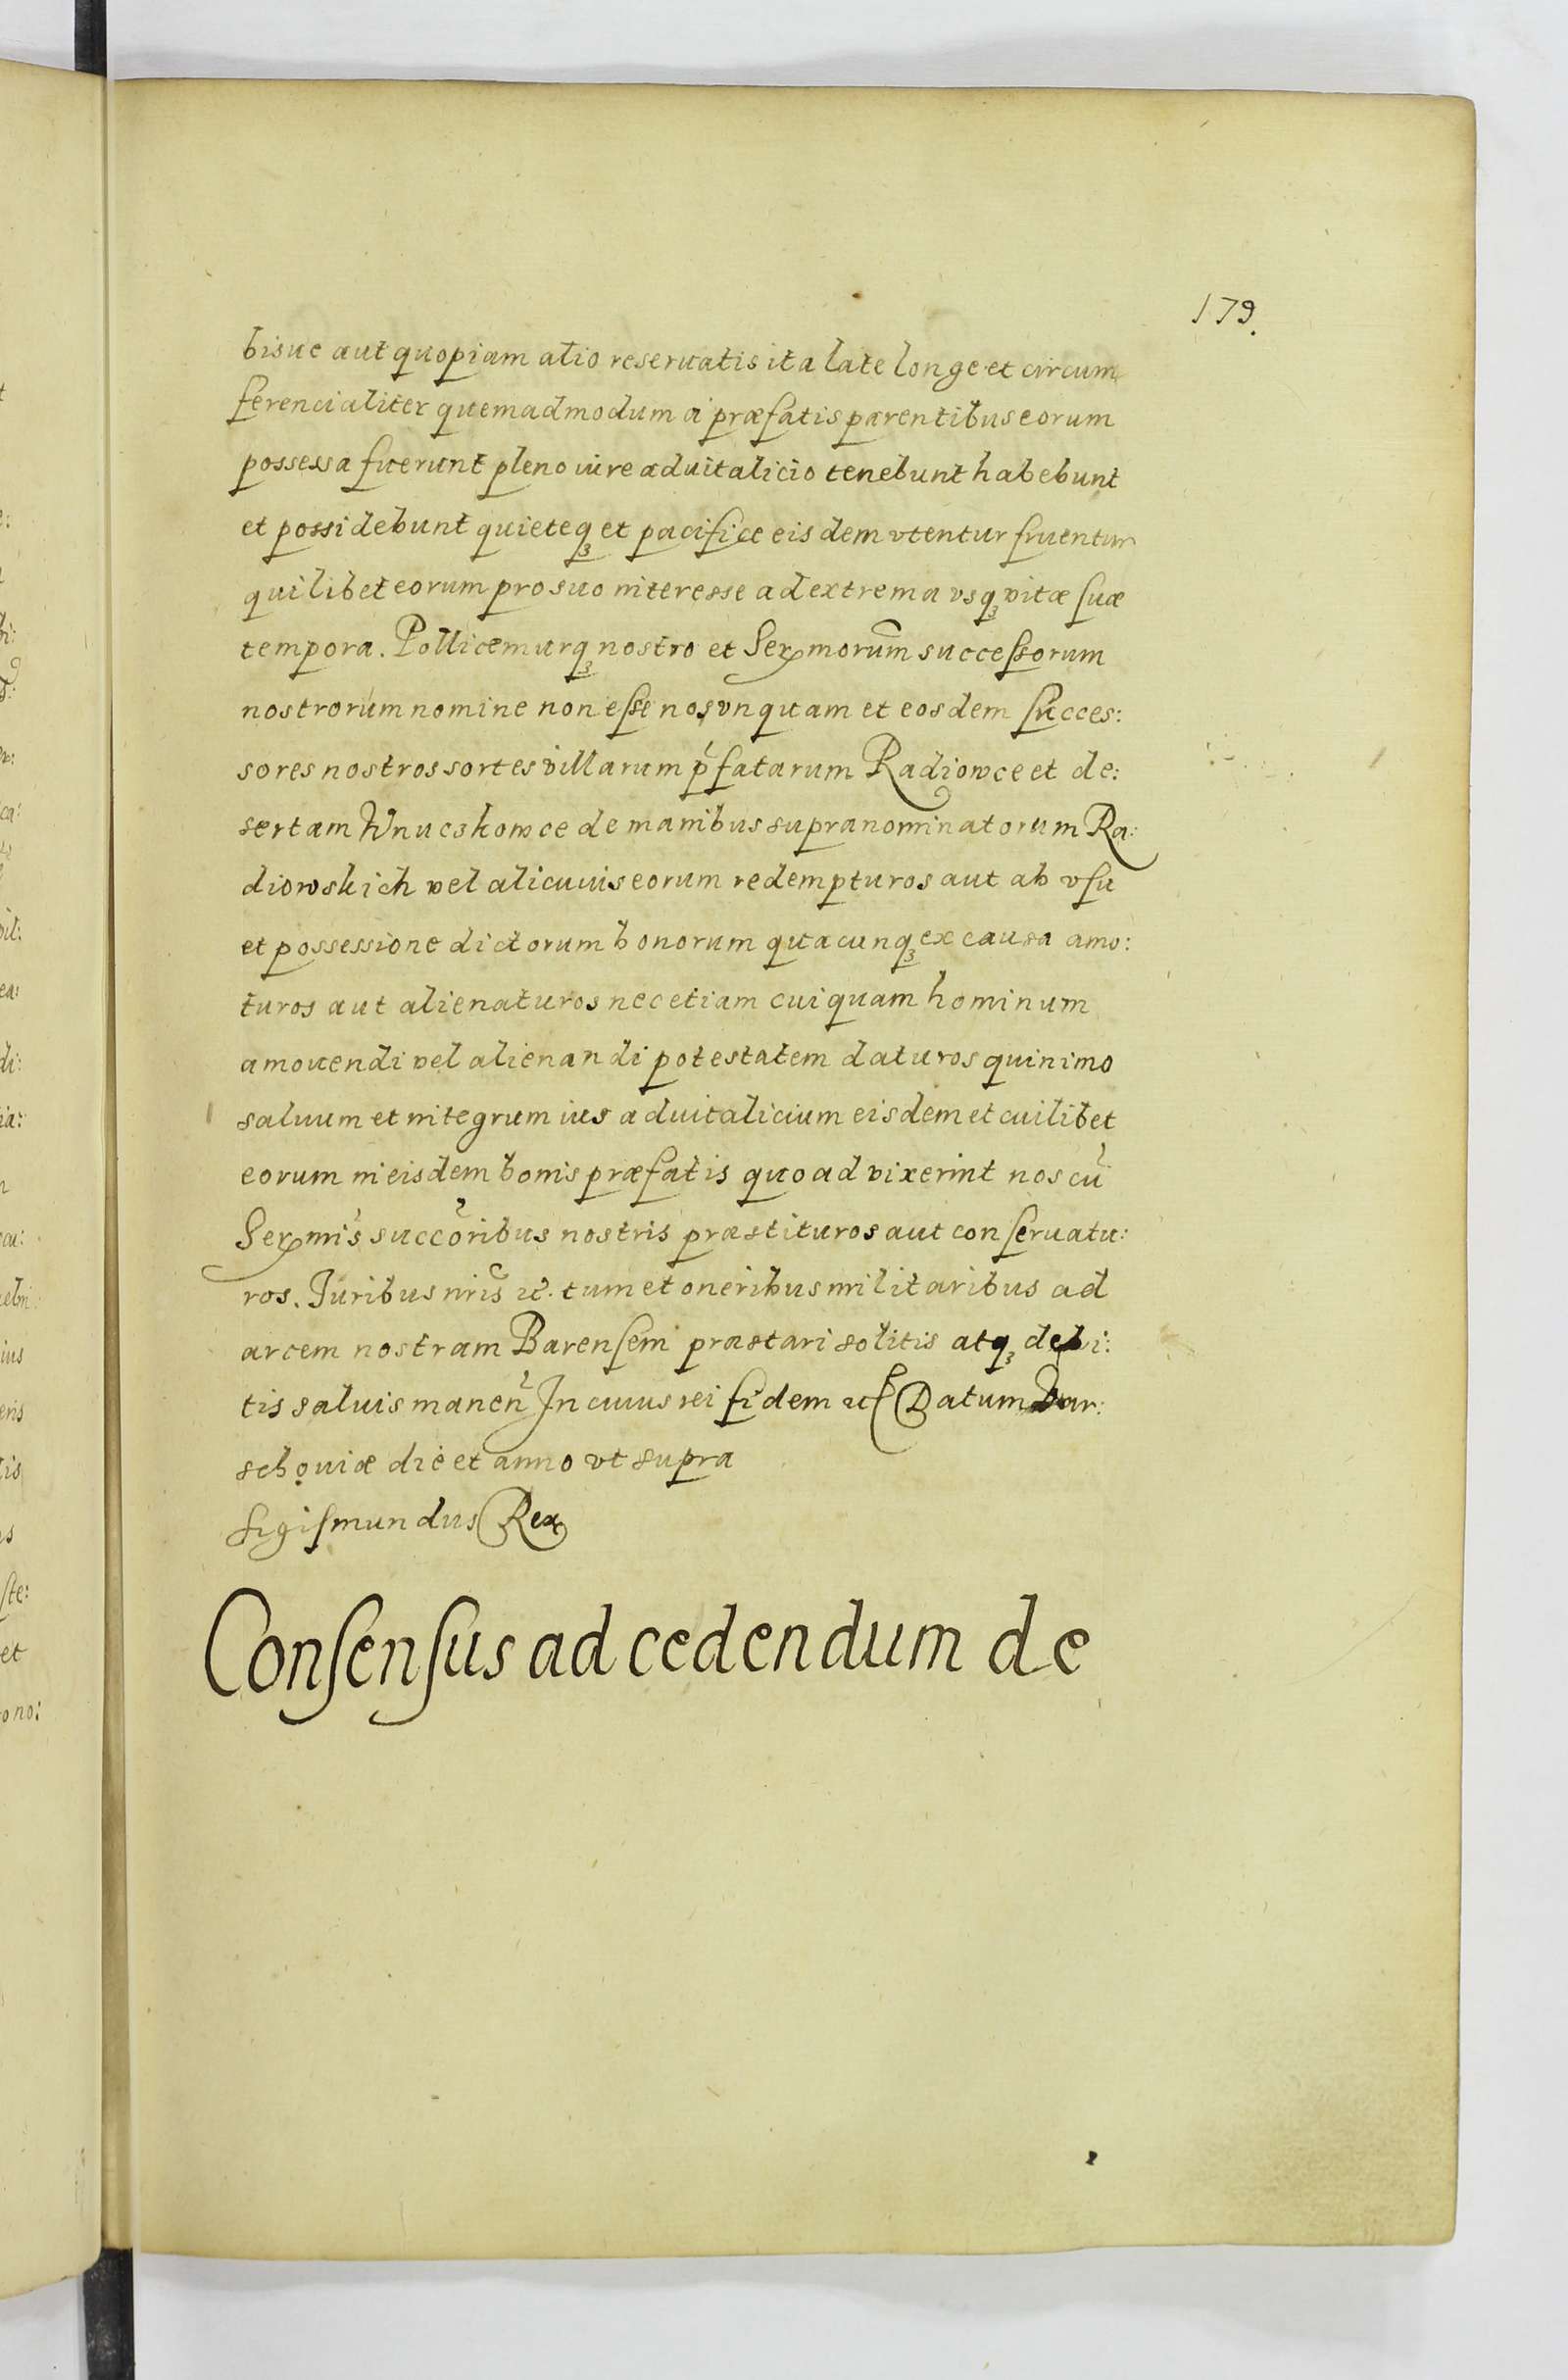 179.
bisue aut quopiam alio reseruatis ita late longe et circum
ferencialiter quemadmodum à præfatis parentibus eorum
possessa fuerunt pleno iure aduitalicio tenebunt habebunt
et possidebunt quieteqꝫ et pacifice eisdem vtentur fruentur
quilibet eorum pro suo interesse ad extrema vsqꝫ vitæ suæ
tempora. Pollicemurqꝫ nostro et Serꝫmorum̃ successorum
nostrorum nomine non esse nos vnquam et eosdem succes:
sores nostros sortes villarum ṕfatarum Radiowce et de:
sertam Wnuczkowce de manibus supranominatorum Ra:
diowskich vel alicuius eorum redempturos aut ab vsu
et possessione dictorum bonorum quacunqꝫ ex causa amo:
turos aut alienaturos nec etiam cuiquam hominum
amouendi vel alienandi potestatem daturos quinimo
saluum et integrum ius aduitalicium eisdem et cuilibet
eorum in eisdem bonis præfatis quoad vixerint nos cũ
Serꝫmis̃ succõribus nostris præstituros aut conseruatu:
ros. Juribus nris̃ ꝛc̃. tum et oneribus militaribus ad
arcem nostram Barensem præstari solitis atqꝫ debi:
tis saluis maneñ In cuius rei fidem ꝛc̃ Datum Var:
schouiæ die et anno vt supra
Sigismundus Rex
Consensus ad cedendum de